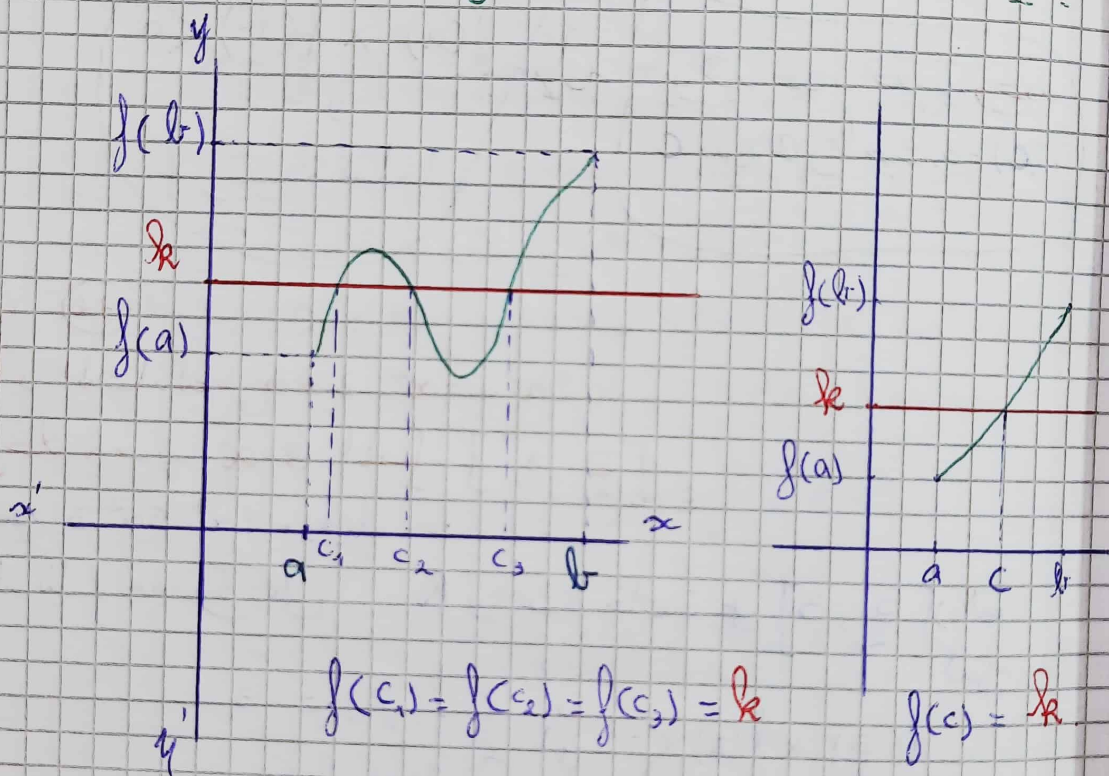 y
f(b)
k
f(a)
x'
x
a
c₁
c₂
c₃
b
y'
f(c₁) = f(c₂) = f(c₃) = k
f(b)
k
f(a)
a
c
b
f(c) = k